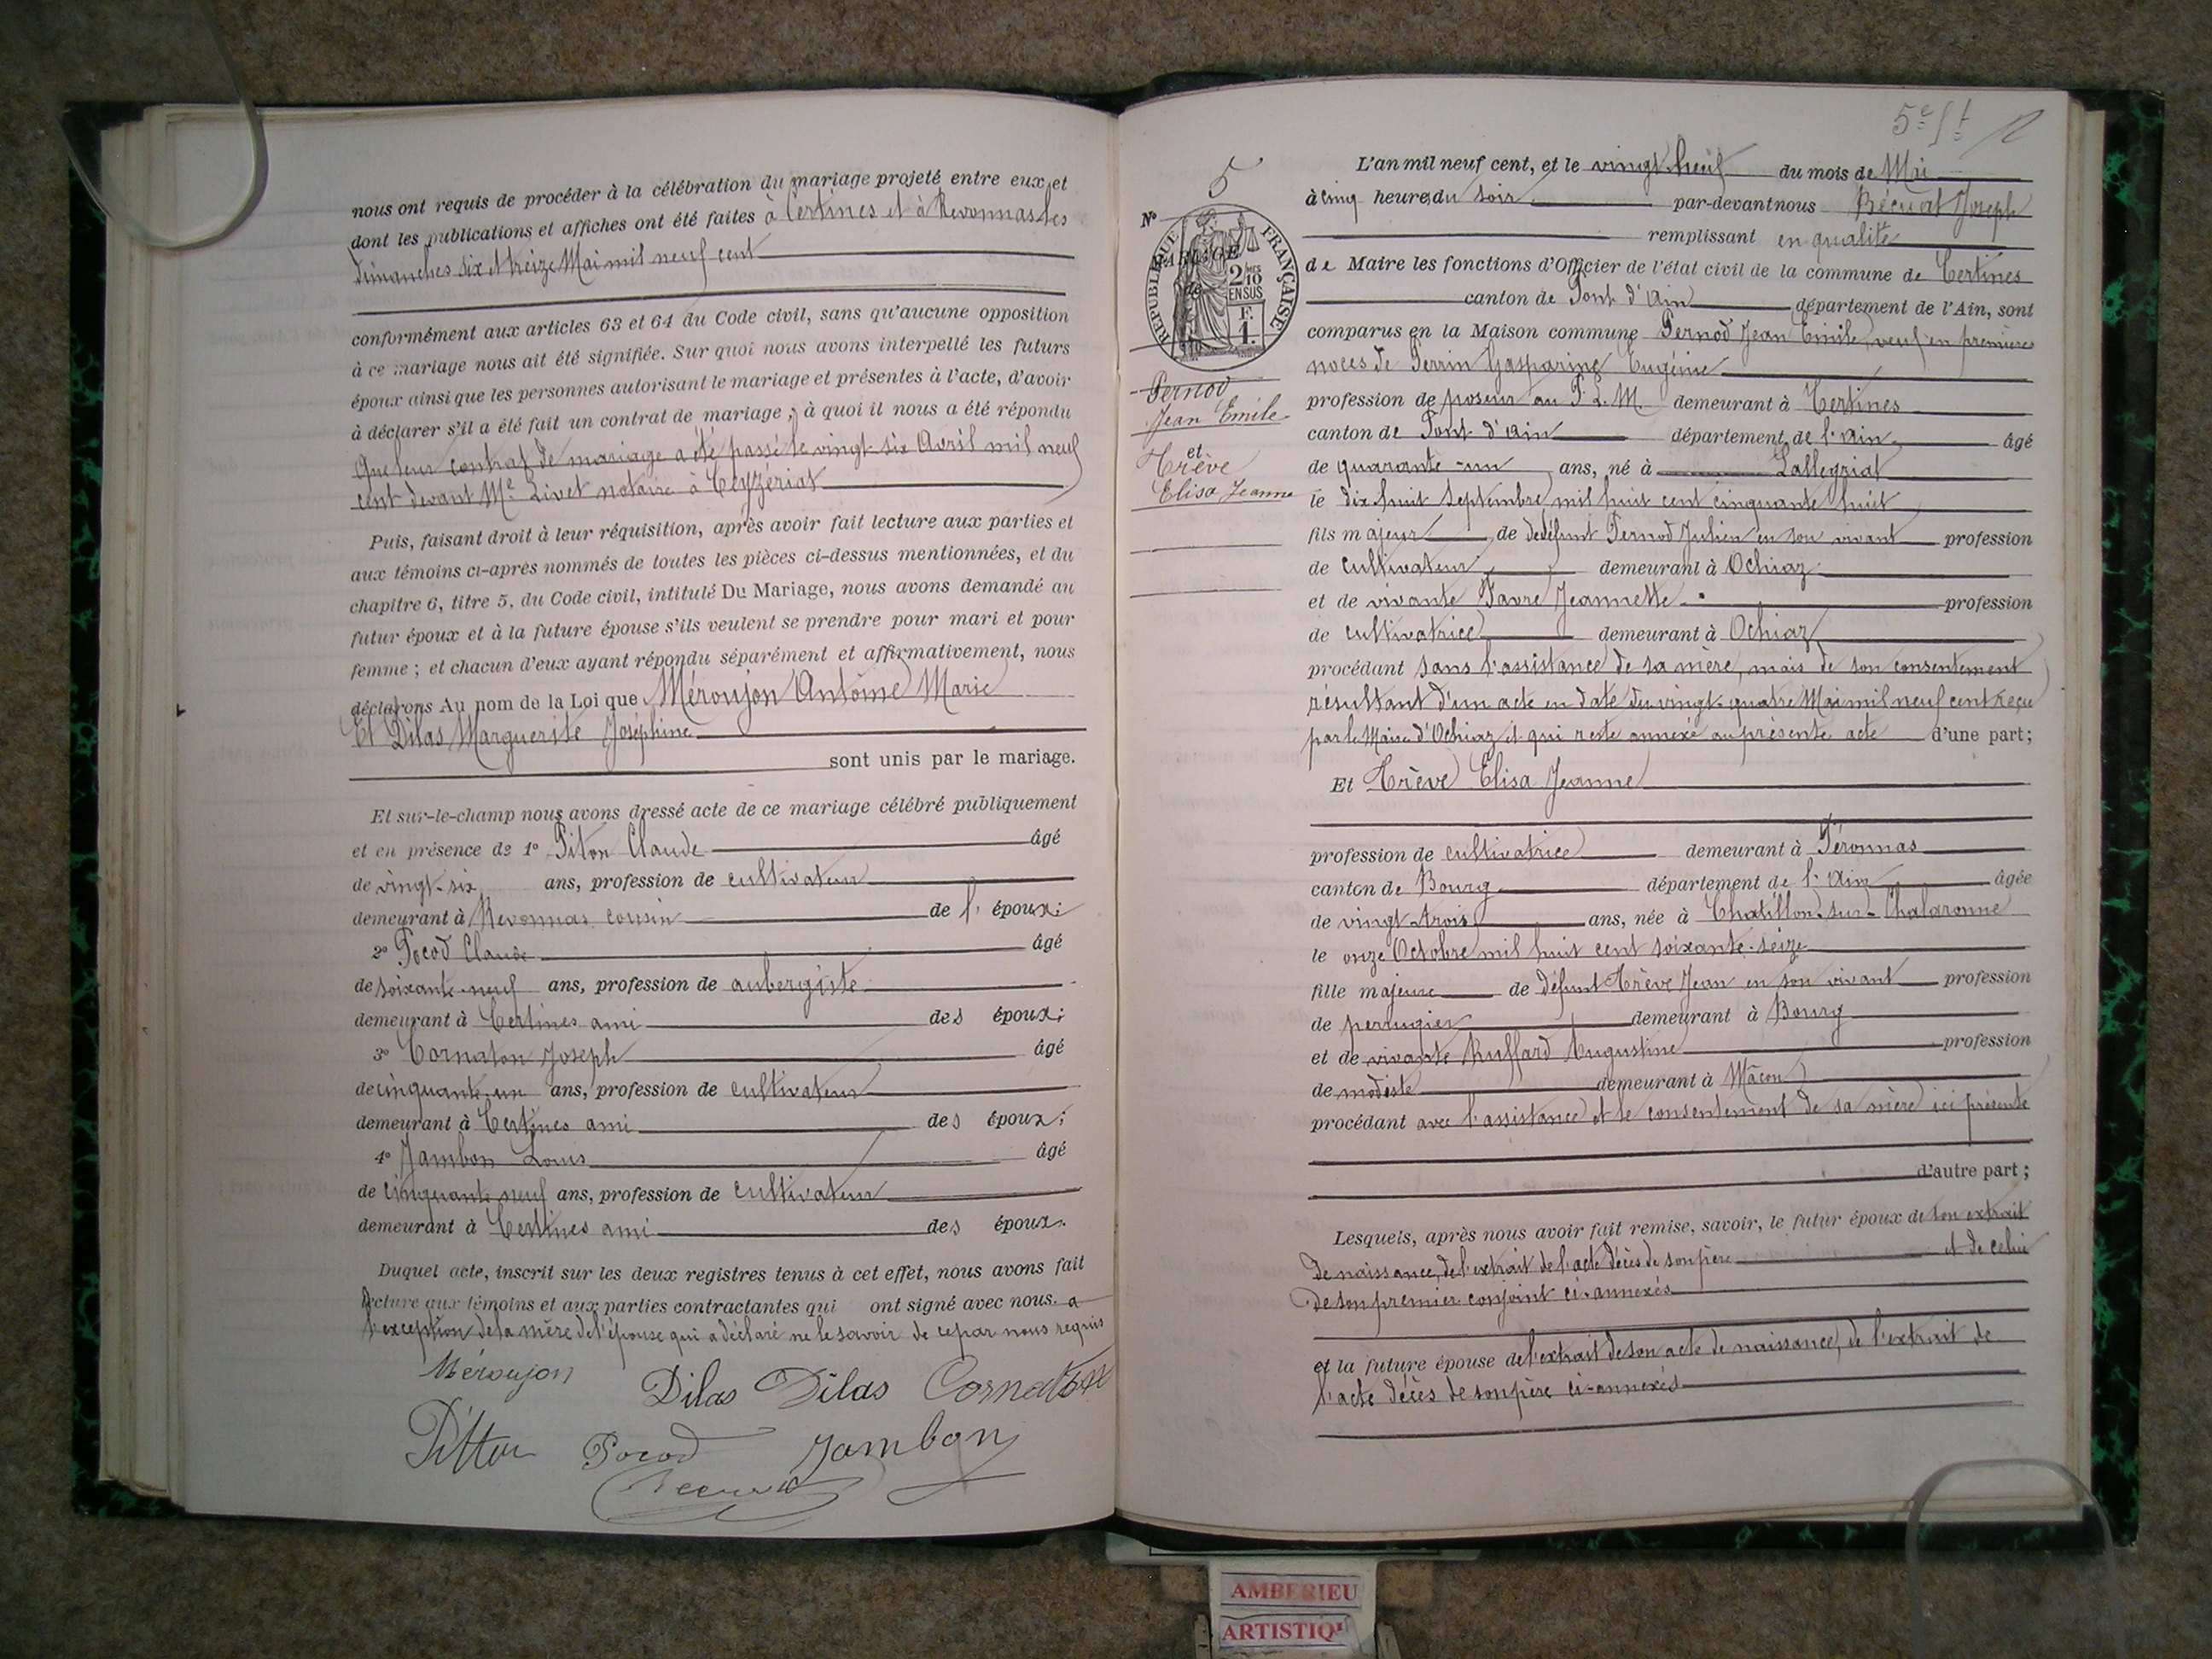 nous ont requis de procéder à la célébration du mariage projeté entre eux et
dont les publications et affiches ont été faites à Certines et à Revonnas les
dimanches six et treize Mai mil neuf cent
conformément aux articles 63 et 64 du Code civil, sans qu'aucune opposition
à ce mariage nous ait été signifiée. Sur quoi nous avons interpellé les futurs
époux ainsi que les personnes autorisant le mariage et présentes à l'acte, d'avoir
à déclarer s'il a été fait un contrat de mariage ; à quoi il nous a été répondu
Que leur contrat de mariage a été passé le vingt-six Avril mil neuf
cent devant Me Livet notaire à Ceyzériat
Puis, faisant droit à leur réquisition, après avoir fait lecture aux parties et
aux témoins ci-après nommés de toutes les pièces ci-dessus mentionnées, et du
chapitre 6, titre 5, du Code civil, intitulé Du Mariage, nous avons demandé au
futur époux et à la future épouse s'ils veulent se prendre pour mari et pour
femme ; et chacun d'eux ayant répondu séparément et affirmativement, nous
déclarons Au nom de la Loi que Méroujon Antoine Marie
Et Dilas Marguerite Joséphine
sont unis par le mariage.
Et sur-le-champ nous avons dressé acte de ce mariage célébré publiquement
et en présence de 1° Piton Claude âgé
de vingt-six ans, profession de cultivateur
demeurant à Revonnas cousin de l' époux;
2° Pocod Claude âgé
de soixante-neuf ans, profession de aubergiste
demeurant à Certines ami des époux;
3° Cornaton Joseph âgé
de cinquante-un ans, profession de cultivateur
demeurant à Certines ami des époux;
4° Jambon Louis âgé
de cinquante-neuf ans, profession de cultivateur
demeurant à Certines ami des époux.
Duquel acte, inscrit sur les deux registres tenus à cet effet, nous avons fait
lecture aux témoins et aux parties contractantes qui ont signé avec nous. a
l'exception de la mère de l'épouse qui a déclaré ne le savoir de ce par nous requis
Méroujon Dilas Dilas Cornaton
Pitton Pocod Jambon
5e ft
5
N°
RÉPUBLIQUE FRANÇAISE
2/10 EN SUS
F. 1.
Pernod
Jean Emile
et
Trève
Elisa Jeanne
L'an mil neuf cent, et le vingt-neuf du mois de Mai
à cinq heures du soir par-devant nous Récuat Joseph
remplissant en qualité
de Maire les fonctions d'Officier de l'état civil de la commune de Certines
canton de Pont d'Ain département de l'Ain, sont
comparus en la Maison commune Pernod Jean Emile, veuf en premières
noces de Perrin Gasparine Eugénie
profession de poseur au P. L. M. demeurant à Certines
canton de Pont d'Ain département de l'Ain âgé
de quarante-un ans, né à Lalleyriat
le dix-huit Septembre mil huit cent cinquante huit
fils majeur de dedéfunt Pernod Julien en son vivant profession
de cultivateur demeurant à Ochiaz
et de vivante Favre Jeannette profession
de cultivatrice demeurant à Ochiaz
procédant sans l'assistance de sa mère, mais de son consentement
résultant d'un acte en date du vingt-quatre Mai mil neuf cent reçu
par le Maire d'Ochiaz et qui reste annexé au présente acte d'une part;
Et Trève Elisa Jeanne
profession de cultivatrice demeurant à Péronnas
canton de Bourg département de l'Ain âgée
de vingt-trois ans, née à Chatillon-sur-Chalaronne
le onze Octobre mil huit cent soixante-seize
fille majeure de défunt Trève Jean en son vivant profession
de perruquier demeurant à Bourg
et de vivante Ruffard Augustine profession
de modiste demeurant à Mâcon
procédant avec l'assistance et le consentement de sa mère ici présente
d'autre part ;
Lesquels, après nous avoir fait remise, savoir, le futur époux de son extrait
de naissance, de l'extrait de l'acte décès de son père et de celui
de son premier conjoint ci-annexés
et la future épouse de l'extrait de son acte de naissance, de l'extrait de
l'acte décès de son père ci-annexés
AMBERIEU
ARTISTIQ